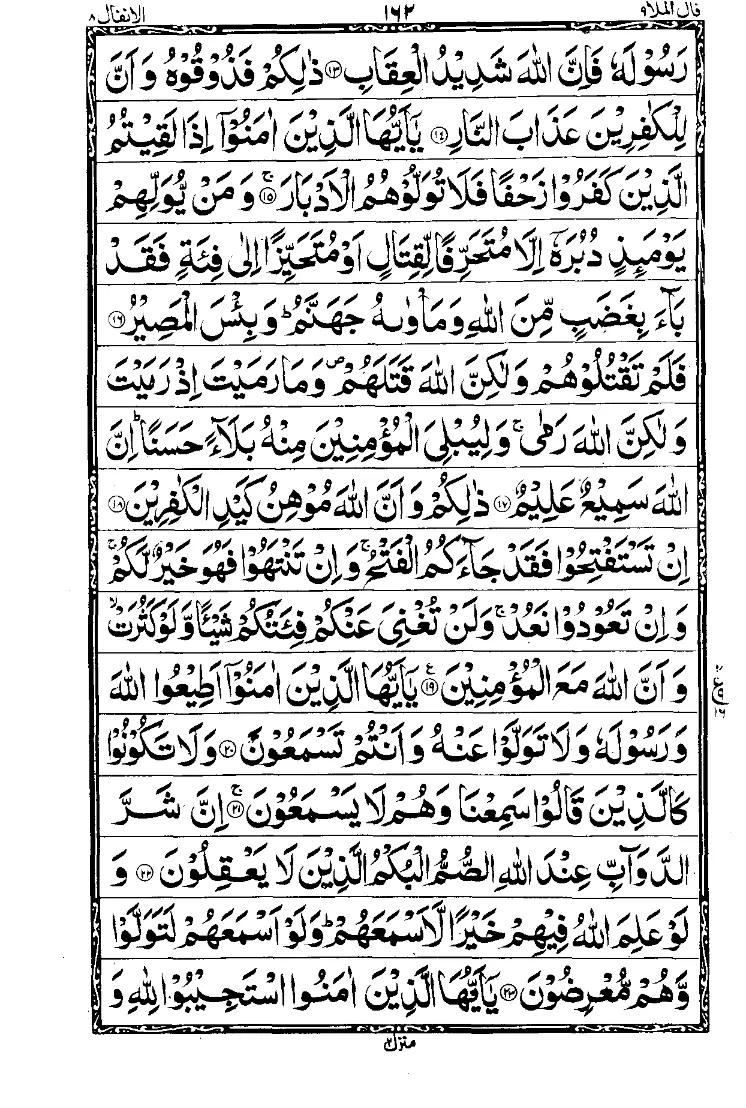 قال الملا٩ ١٦٢ الانفال ٨
رَسُوْلَهٗ فَاِنَّ اللّٰهَ شَدِيْدُ الْعِقَابِ ﴿١٣﴾ ذٰلِكُمْ فَذُوْقُوْهُ وَ اَنَّ
لِلْكٰفِرِيْنَ عَذَابَ النَّارِ ﴿١٤﴾ يٰۤاَيُّهَا الَّذِيْنَ اٰمَنُوْۤا اِذَا لَقِيْتُمُ
الَّذِيْنَ كَفَرُوْا زَحْفًا فَلَا تُوَلُّوْهُمُ الْاَدْبَارَ ﴿١٥﴾ۚ وَ مَنْ يُّوَلِّهِمْ
يَوْمَىِٕذٍ دُبُرَهٗۤ اِلَّا مُتَحَرِّفًا لِّقِتَالٍ اَوْ مُتَحَيِّزًا اِلٰى فِئَةٍ فَقَدْ
بَآءَ بِغَضَبٍ مِّنَ اللّٰهِ وَ مَاْوٰىهُ جَهَنَّمُ ؕ وَ بِئْسَ الْمَصِيْرُ ﴿١٦﴾
فَلَمْ تَقْتُلُوْهُمْ وَ لٰكِنَّ اللّٰهَ قَتَلَهُمْ ۪ وَ مَا رَمَيْتَ اِذْ رَمَيْتَ
وَ لٰكِنَّ اللّٰهَ رَمٰى ۚ وَ لِيُبْلِيَ الْمُؤْمِنِيْنَ مِنْهُ بَلَآءً حَسَنًا ؕ اِنَّ
اللّٰهَ سَمِيْعٌ عَلِيْمٌ ﴿١٧﴾ ذٰلِكُمْ وَ اَنَّ اللّٰهَ مُوْهِنُ كَيْدِ الْكٰفِرِيْنَ ﴿١٨﴾
اِنْ تَسْتَفْتِحُوْا فَقَدْ جَآءَكُمُ الْفَتْحُ ۚ وَ اِنْ تَنْتَهُوْا فَهُوَ خَيْرٌ لَّكُمْ ۚ
وَ اِنْ تَعُوْدُوْا نَعُدْ ۚ وَ لَنْ تُغْنِيَ عَنْكُمْ فِئَتُكُمْ شَيْـًٔا وَّ لَوْ كَثُرَتْ ۙ
وَ اَنَّ اللّٰهَ مَعَ الْمُؤْمِنِيْنَ ﴿١٩﴾ ع يٰۤاَيُّهَا الَّذِيْنَ اٰمَنُوْۤا اَطِيْعُوا اللّٰهَ
وَ رَسُوْلَهٗ وَ لَا تَوَلَّوْا عَنْهُ وَ اَنْتُمْ تَسْمَعُوْنَ ﴿٢٠﴾ وَ لَا تَكُوْنُوْا
كَالَّذِيْنَ قَالُوْا سَمِعْنَا وَ هُمْ لَا يَسْمَعُوْنَ ﴿٢١﴾ۚ اِنَّ شَرَّ
الدَّوَآبِّ عِنْدَ اللّٰهِ الصُّمُّ الْبُكْمُ الَّذِيْنَ لَا يَعْقِلُوْنَ ﴿٢٢﴾ وَ
لَوْ عَلِمَ اللّٰهُ فِيْهِمْ خَيْرًا لَّاَسْمَعَهُمْ ؕ وَ لَوْ اَسْمَعَهُمْ لَتَوَلَّوْا
وَّ هُمْ مُّعْرِضُوْنَ ﴿٢٣﴾ يٰۤاَيُّهَا الَّذِيْنَ اٰمَنُوا اسْتَجِيْبُوْا لِلّٰهِ وَ
منزل ٢